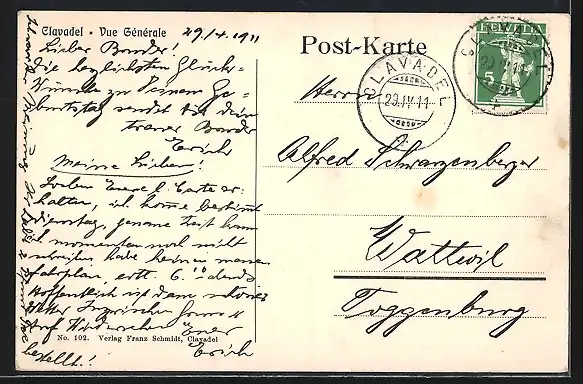 Clavadel • Vue Générale
29/4. 1911
Lieber Bruder!
Die herzlichsten Glück-
wünsche zu Deinem Ge-
burtstag sendet Dir dein
treuer Bruder
Erich
Meine Lieben!
Soeben Eure l. Carte er-
halten, ich komme bestimmt
Dienstag, genaue Zeit kann
ich momentan noch nicht
schreiben, habe keinen neuen
Fahrplan evtl. 6°° abends
Hoffentlich ist dann schönes
Wetter
Auf Wiedersehen Euer
Erich
bestellt!!
No. 102. Verlag Franz Schmidt, Clavadel
Post-Karte
CLAVADEL
29.IV.11
HELVETIA
5
CLAVADEL
29.IV.11
Herrn
Alfred Schwarzenberger
Wattwil
Toggenburg